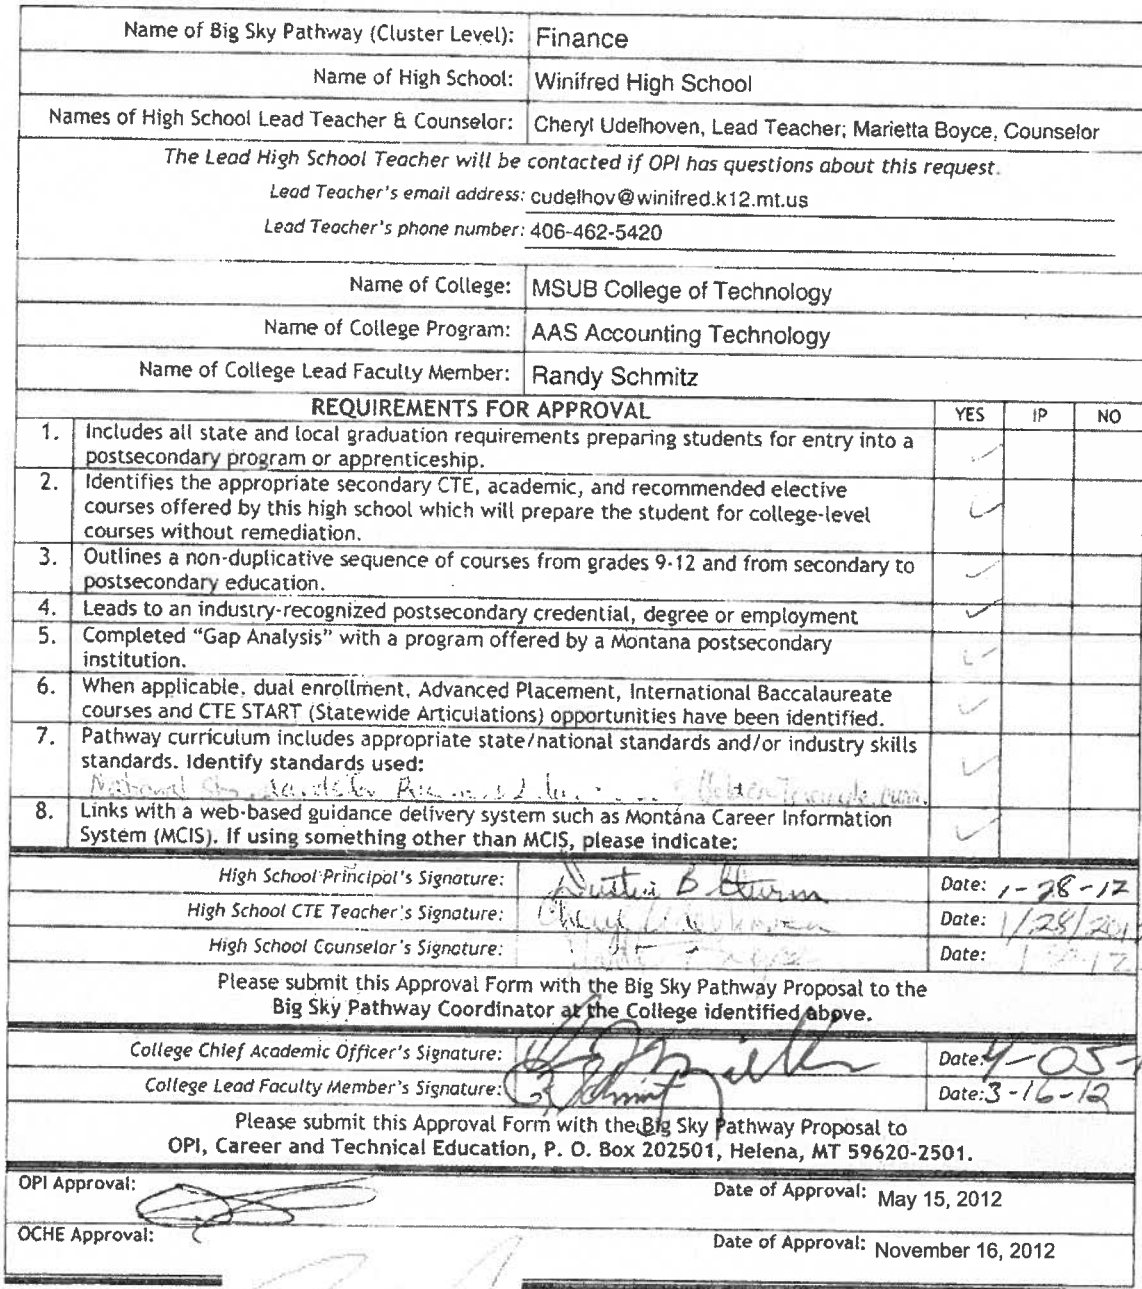 Name of Big Sky Pathway (Cluster Level): Finance
Name of High School: Winifred High School
Names of High School Lead Teacher & Counselor: Cheryl Udelhoven, Lead Teacher; Marietta Boyce, Counselor
The Lead High School Teacher will be contacted if OPI has questions about this request.
Lead Teacher's email address: cudelhov@winifred.k12.mt.us
Lead Teacher's phone number: 406-462-5420
Name of College: MSUB College of Technology
Name of College Program: AAS Accounting Technology
Name of College Lead Faculty Member: Randy Schmitz
REQUIREMENTS FOR APPROVAL YES IP NO
1. Includes all state and local graduation requirements preparing students for entry into a
postsecondary program or apprenticeship.
2. Identifies the appropriate secondary CTE, academic, and recommended elective
courses offered by this high school which will prepare the student for college-level
courses without remediation.
3. Outlines a non-duplicative sequence of courses from grades 9-12 and from secondary to
postsecondary education.
4. Leads to an industry-recognized postsecondary credential, degree or employment
5. Completed “Gap Analysis” with a program offered by a Montana postsecondary
institution.
6. When applicable, dual enrollment, Advanced Placement, International Baccalaureate
courses and CTE START (Statewide Articulations) opportunities have been identified.
7. Pathway curriculum includes appropriate state/national standards and/or industry skills
standards. Identify standards used:
National
8. Links with a web-based guidance delivery system such as Montana Career Information
System (MCIS). If using something other than MCIS, please indicate:
High School Principal's Signature: Date: 1-28-12
High School CTE Teacher's Signature: Cheryl Udelhoven Date: 1/28/201
High School Counselor's Signature: Date:
Please submit this Approval Form with the Big Sky Pathway Proposal to the
Big Sky Pathway Coordinator at the College identified above.
College Chief Academic Officer's Signature: Date: 4-05-
College Lead Faculty Member's Signature: Date: 3-16-12
Please submit this Approval Form with the Big Sky Pathway Proposal to
OPI, Career and Technical Education, P. O. Box 202501, Helena, MT 59620-2501.
OPI Approval: Date of Approval: May 15, 2012
OCHE Approval: Date of Approval: November 16, 2012